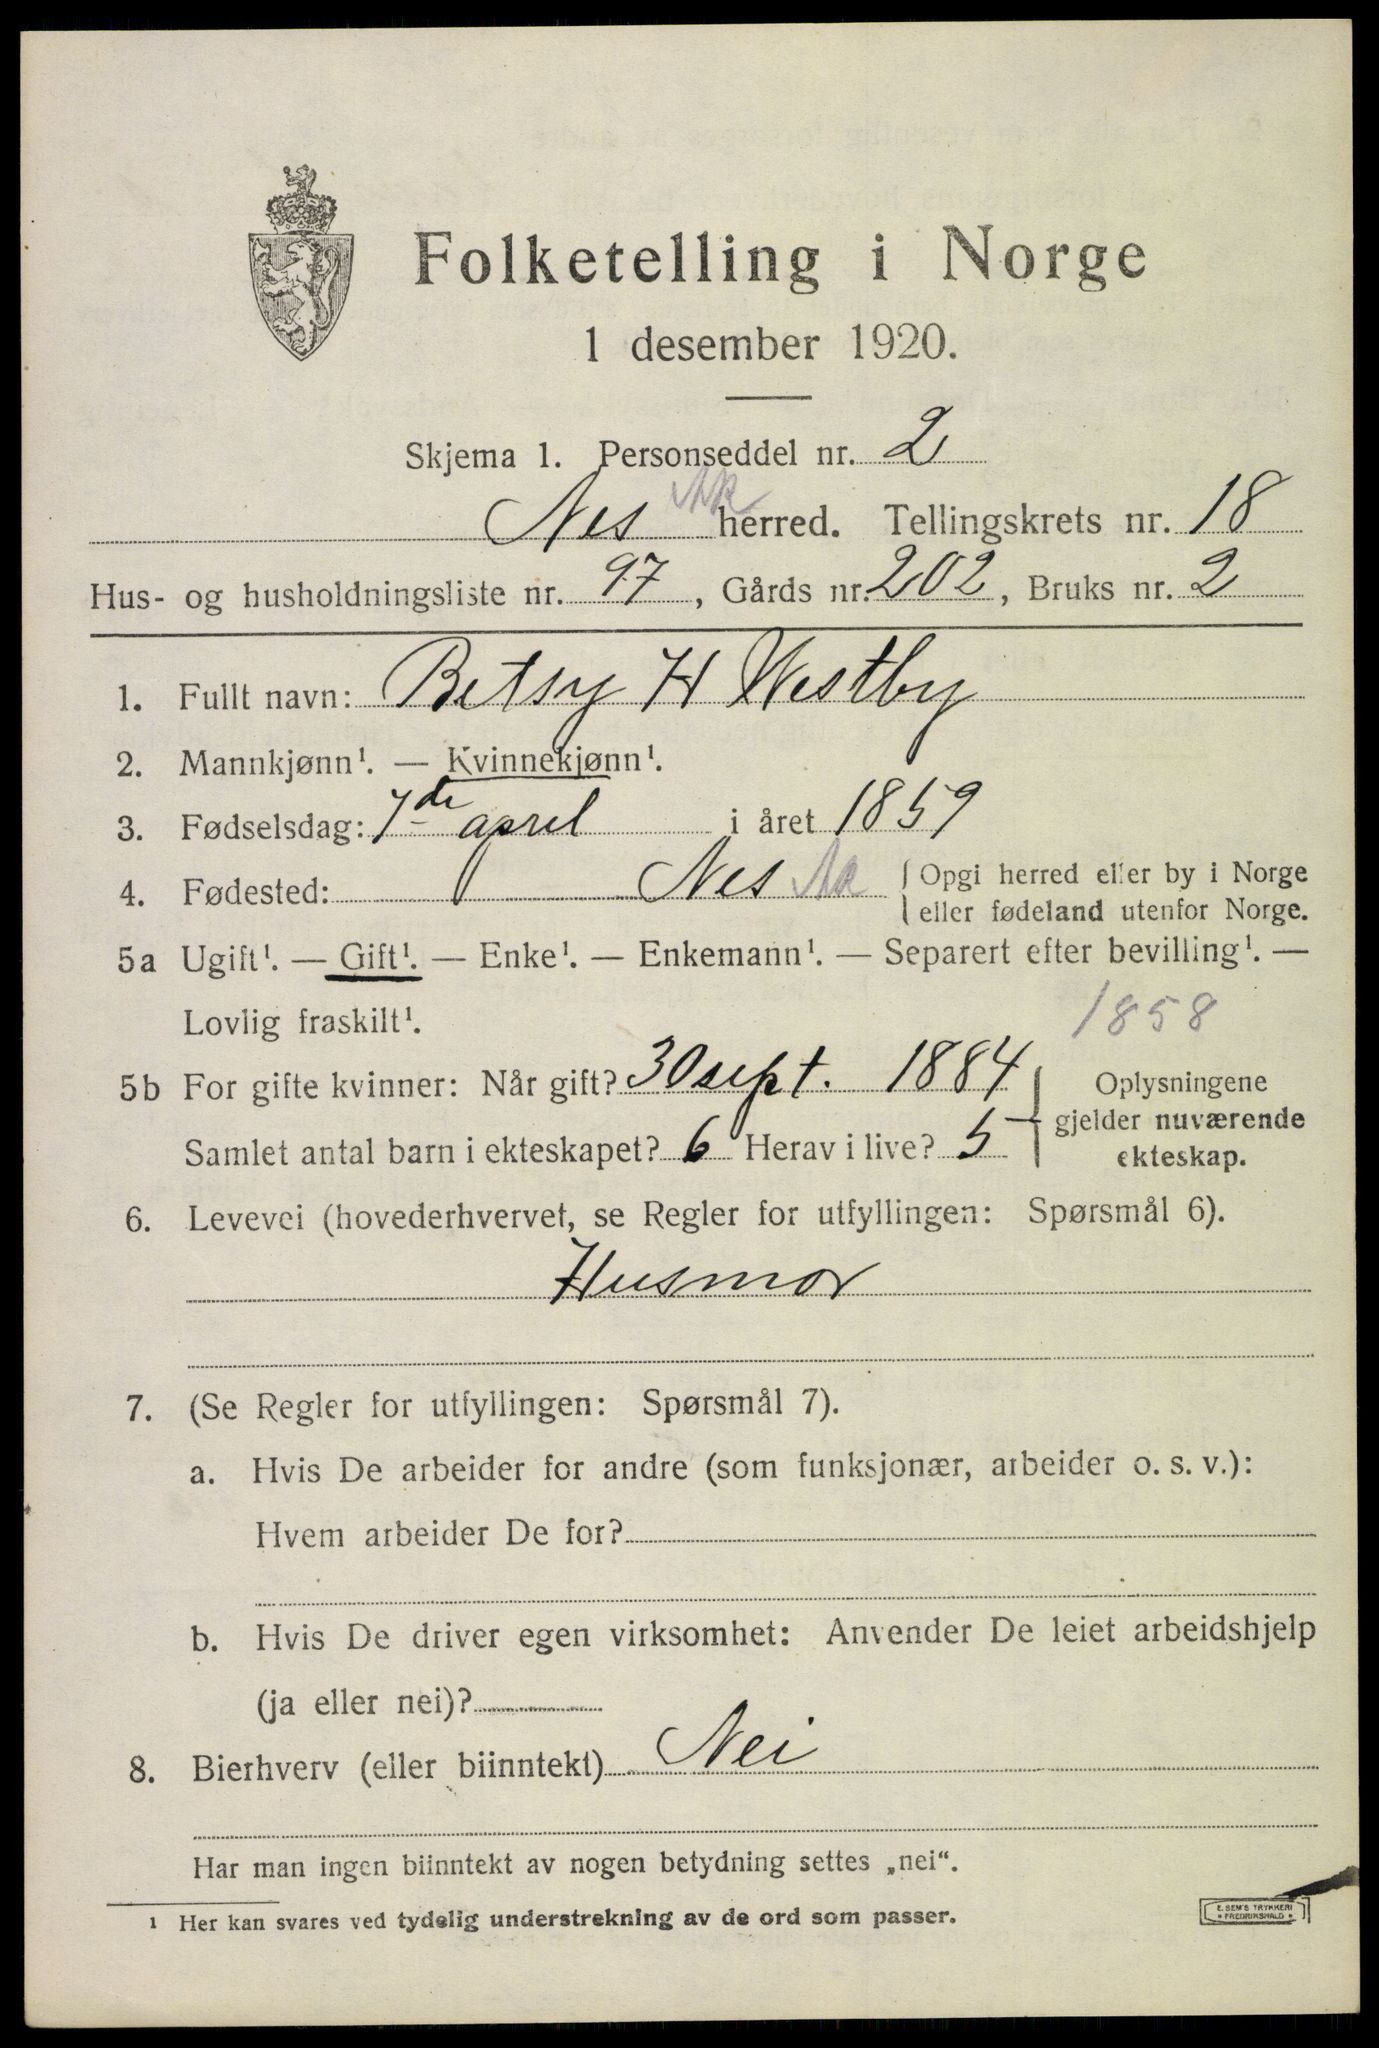 Folketelling i Norge
1 desember 1920.
Skjema 1. Personseddel nr. 2
Nes Ak herred. Tellingskrets nr. 18
Hus- og husholdningsliste nr. 97, Gårds nr. 202, Bruks nr. 2
1. Fullt navn: Betsy H Westby
2. Mannkjønn¹. — Kvinnekjønn¹.
3. Fødselsdag: 7de april i året 1859
4. Fødested: Nes Ak { Opgi herred eller by i Norge
eller fødeland utenfor Norge.
5a Ugift¹. — Gift¹. — Enke¹. — Enkemann¹. — Separert efter bevilling¹. —
Lovlig fraskilt¹.
1858
5b For gifte kvinner: Når gift? 30 sept. 1884 } Oplysningene
gjelder nuværende
Samlet antal barn i ekteskapet? 6 Herav i live? 5
ekteskap.
6. Levevei (hovederhvervet, se Regler for utfyllingen: Spørsmål 6).
Husmor
7. (Se Regler for utfyllingen: Spørsmål 7).
a. Hvis De arbeider for andre (som funksjonær, arbeider o. s. v.):
Hvem arbeider De for?
b. Hvis De driver egen virksomhet: Anvender De leiet arbeidshjelp
(ja eller nei)?
8. Bierhverv (eller biinntekt) Nei
Har man ingen biinntekt av nogen betydning settes „nei“.
¹ Her kan svares ved tydelig understrekning av de ord som passer.
E. SEM'S TRYKKERI
* FREDRIKSHALD *